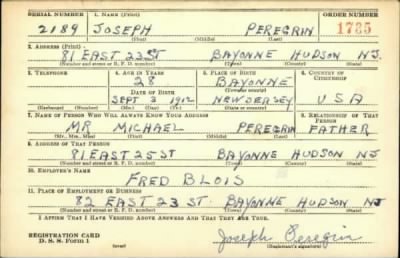 SERIAL NUMBER 1. NAME (Print) ORDER NUMBER
2189 JOSEPH PEREGRIN 1725
(First) (Middle) (Last)
2. ADDRESS (Print)
81 EAST 22 ST BAYONNE HUDSON N.J.
(Number and street or R. F. D. number) (Town) (County) (State)
3. TELEPHONE 4. AGE IN YEARS 5. PLACE OF BIRTH 6. COUNTRY OF CITIZENSHIP
28 BAYONNE
DATE OF BIRTH (Town or county)
SEPT 3 1912 NEW JERSEY U S A
(Exchange) (Number) (Mo.) (Day) (Yr.) (State or country)
7. NAME OF PERSON WHO WILL ALWAYS KNOW YOUR ADDRESS 8. RELATIONSHIP OF THAT PERSON
MR. MICHAEL PEREGRIN FATHER
(Mr., Mrs., Miss) (First) (Middle) (Last)
9. ADDRESS OF THAT PERSON
81 EAST 25 ST BAYONNE HUDSON NJ
(Number and street or R. F. D. number) (Town) (County) (State)
10. EMPLOYER'S NAME
FRED BLOIS
11. PLACE OF EMPLOYMENT OR BUSINESS
82 EAST 23 ST. BAYONNE HUDSON NJ
(Number and street or R. F. D. number) (Town) (County) (State)
I AFFIRM THAT I HAVE VERIFIED ABOVE ANSWERS AND THAT THEY ARE TRUE.
REGISTRATION CARD
D. S. S. Form 1 (over) Joseph Peregrin
(Registrant's signature)